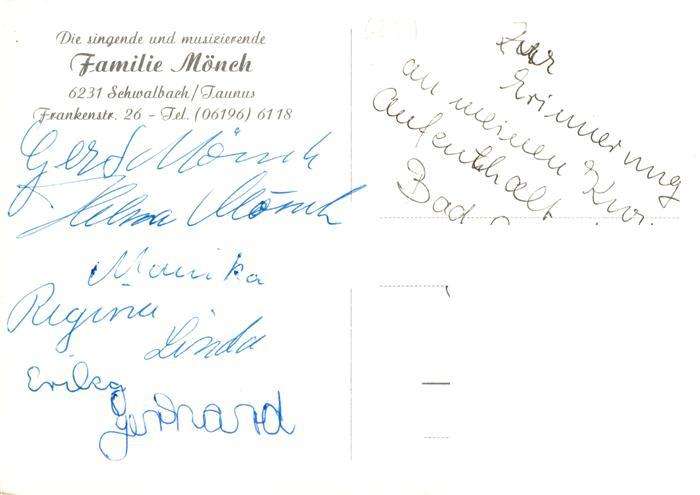 Die singende und musizierende
Familie Mönch
6231 Schwalbach/Taunus
Frankenstr. 26 - Tel. (06196) 6118
Gerd Mönch
Helma Mönch
Monika
Regina
Linda
Erika
Gerhard
Zur
Erinnerung
an meinen Kur
aufenthalt
Bad